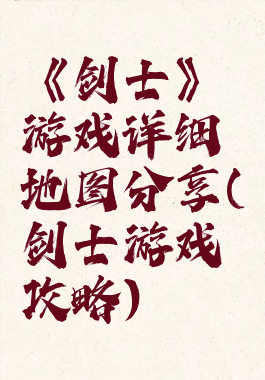 《剑士》
游戏详细
地图分享(
剑士游戏
攻略)